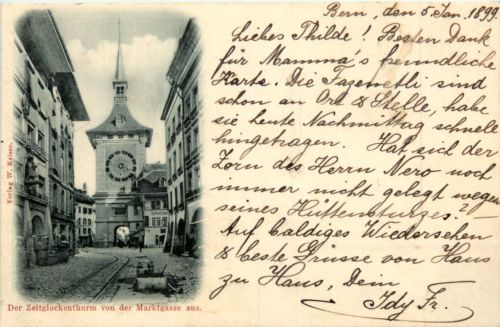 Bern, den 5 Jan. 1899
Liebes Thilde! Besten Dank
für Mamma's freundliche
Karte. Die Fazenetli sind
schon an Ort & Stelle, habe
sie heute Nachmittag schnell
hingetragen. Hat sich der
Zorn des Herrn Nero noch
immer nicht gelegt wegen
seines Hüttensturzes.
Auf baldiges Wiedersehen
& beste Grüsse von Haus
zu Haus, Dein
Idy Fr.
Verlag W. Kaiser.
Der Zeitglockenthurm von der Marktgasse aus.